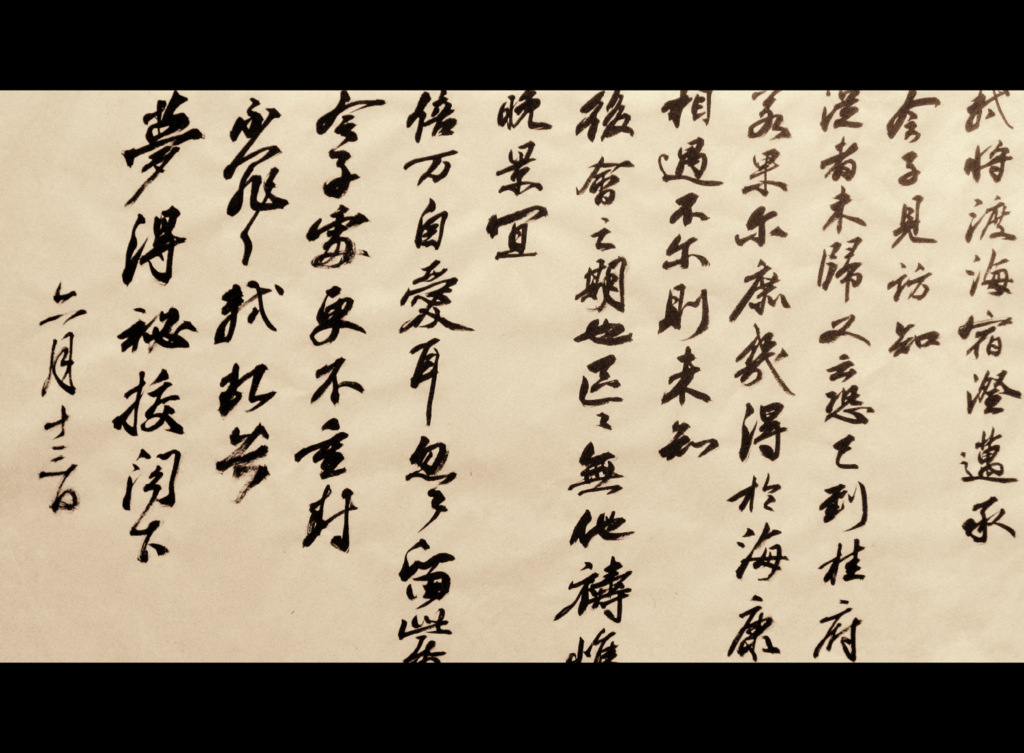 軾將渡海宿澄邁承
令子見訪知
從者未歸又云恐已到桂府
若果尔庶幾得於海康
相遇不尔則未知
後會之期也區區無他禱惟
晚景宜
倍万自愛耳忽忽留此帋
令子處更不重封
不罪不罪軾頓首
夢得祕挍閤下
六月十三日